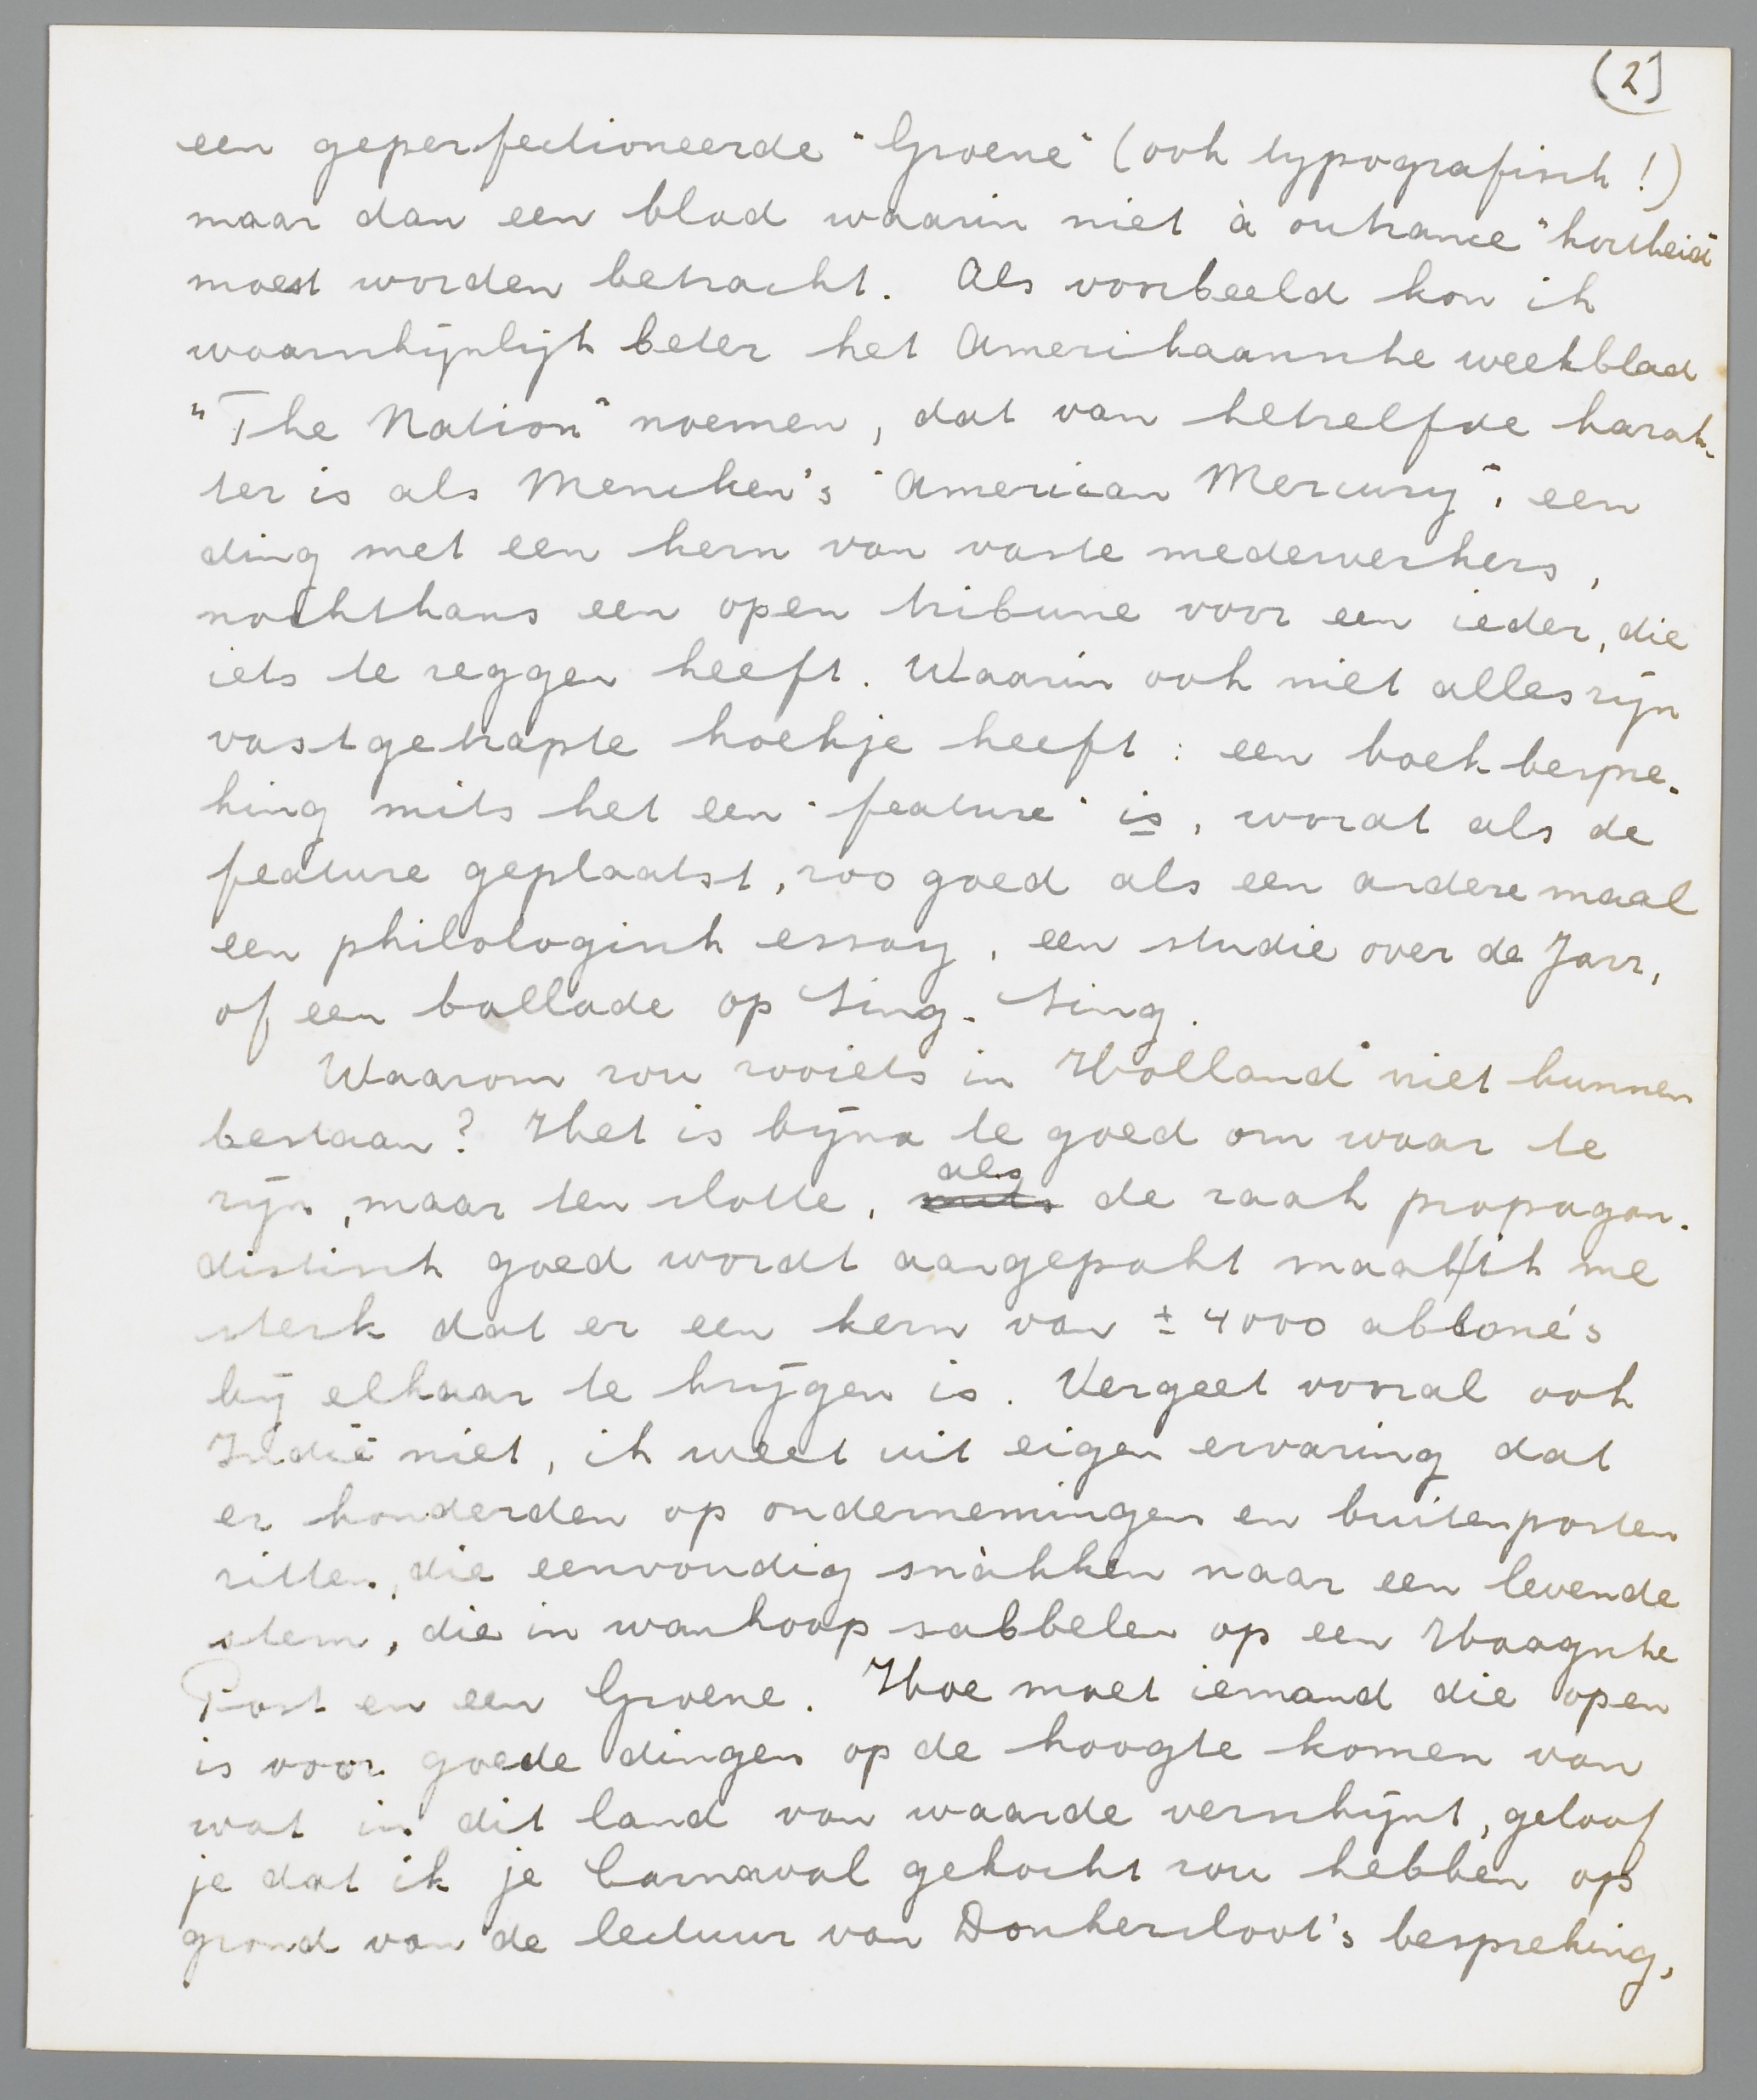 (2)
een geperfectioneerde "Groene" (ook typografisch!)
maar dan een blad waarin niet à outrance "kortheid"
moest worden betracht. Als voorbeeld kon ik
waarschijnlijk beter het Amerikaansche weekblad
"The Nation" noemen, dat van hetzelfde karak-
ter is als Mencken's "American Mercury", een
ding met een kern van vaste medewerkers,
nochthans een open tribune voor een ieder, die
iets te zeggen heeft. Waarin ook niet alles zijn
vastgetrapte hoekje heeft: een boekbespre-
king mits het een "feature" is, wordt als de
feature geplaatst, zoo goed als een andere maal
een philologisch essay, een studie over de Jazz,
of een ballade op Sing-Sing.
Waarom zou zooiets in Holland niet kunnen
bestaan? Het is bijna te goed om waar te
zijn, maar ten slotte, mits als de zaak propagan-
distisch goed wordt aangepakt maak/ik me
sterk dat er een kern van ± 4000 abboné's
bij elkaar te krijgen is. Vergeet vooral ook
Indië niet, ik weet uit eigen ervaring dat
er honderden op ondernemingen en buitenposten
zitten, die eenvoudig snàkken naar een levende
stem, die in wanhoop sabbelen op een Haagsche
Post en een Groene. Hoe moet iemand die open
is voor goede dingen op de hoogte komen van
wat in dit land van waarde verschijnt, geloof
je dat ik je Carnaval gekocht zou hebben op
grond van de lectuur van Donkersloot's bespreking,